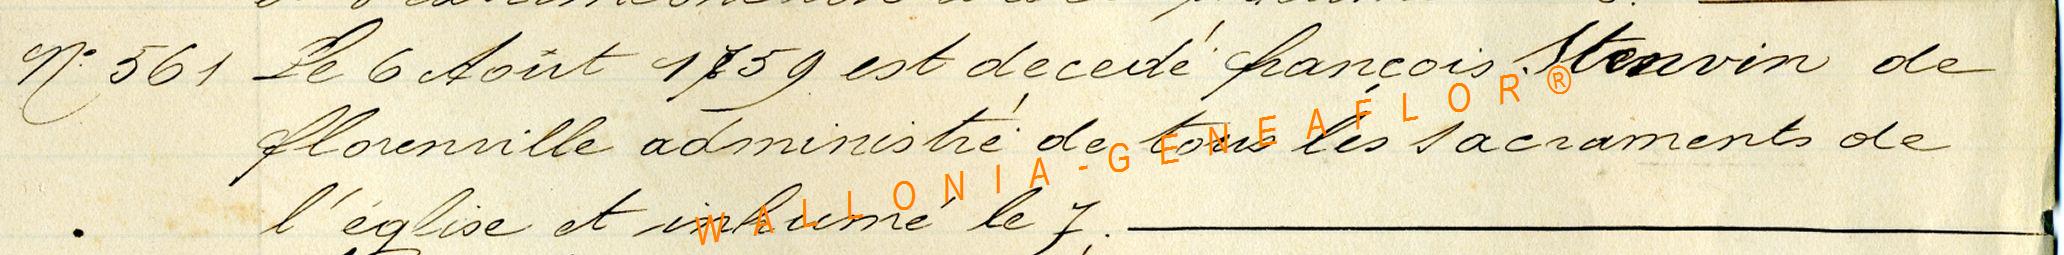 N° 561 Le 6 Août 1759 est decedé françois Stenvin de
florenville administré de tous les sacraments de
l'église et inhumé le 7.
WALLONIA-GENEAFLOR®